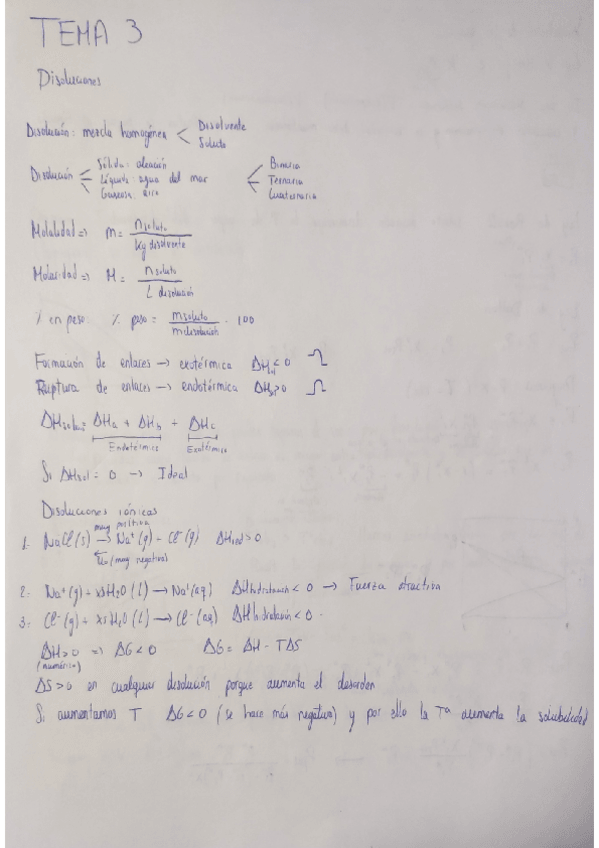 TEMA 3
Disoluciones
Disolución: mezcla homogénea < Disolvente
Soluto
Disolución < Sólida: aleación < Binaria
Líquida: agua del mar Ternaria
Gaseosa: aire Cuaternaria
Molalidad => m = n soluto / kg disolvente
Molaridad => M = n soluto / L disolución
% en peso: % peso = m soluto / m disolución · 100
Formación de enlaces → exotérmica ΔH < 0
Ruptura de enlaces → endotérmica ΔH > 0
ΔHsol = ΔHa + ΔHb + ΔHc
Endotérmico Exotérmico
Si ΔHsol = 0 → Ideal
Disoluciones iónicas
muy positiva
1- NaCl(s) → Na⁺(g) + Cl⁻(g) ΔHred > 0
(muy negativa)
2- Na⁺(g) + xsH₂O(l) → Na⁺(aq) ΔHhidratación < 0 → Fuerza atractiva
3- Cl⁻(g) + xsH₂O(l) → Cl⁻(aq) ΔHhidratación < 0
ΔH > 0 => ΔG < 0 ΔG = ΔH - TΔS
(numérica)
ΔS > 0 en cualquier disolución porque aumenta el desorden
Si aumentamos T ΔG < 0 (se hace más negativo) y por ello la Tª aumenta la solubilidad